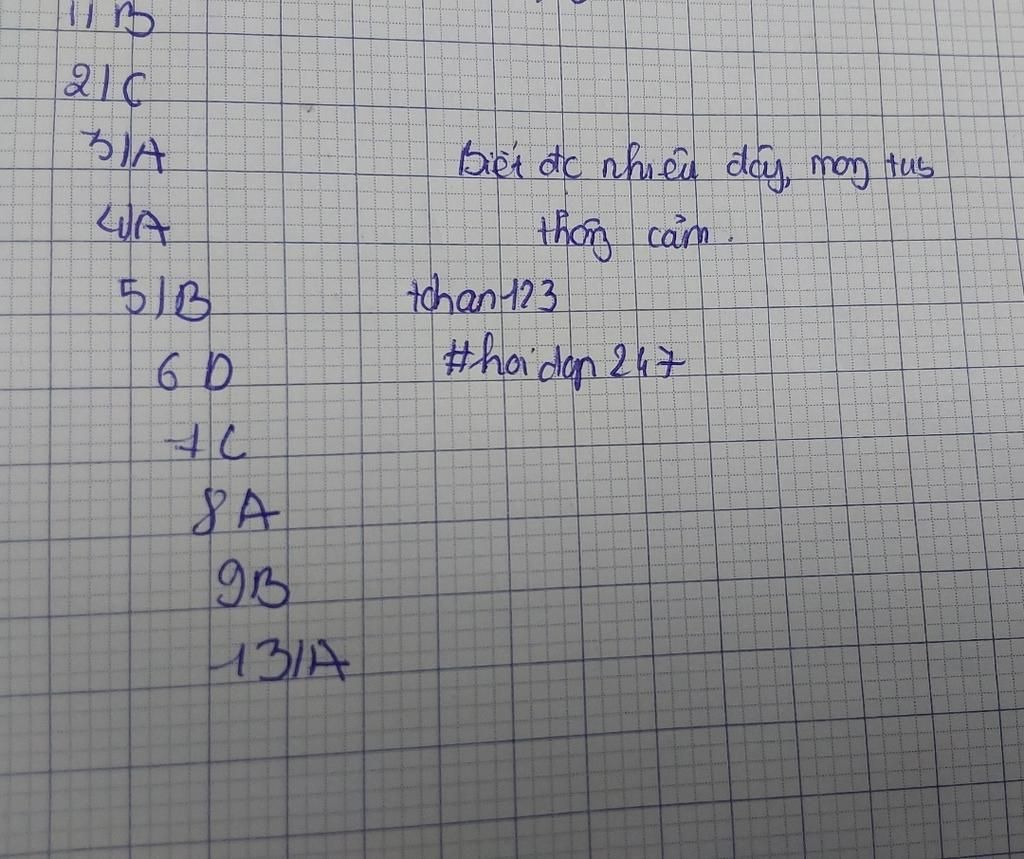 1/ B
2/ C
3/A
4/A
5/B
6 D
7 C
8 A
9B
13/A
Biết đc nhiêu đây, mong tus
thông cảm.
tchan123
#hoidap247